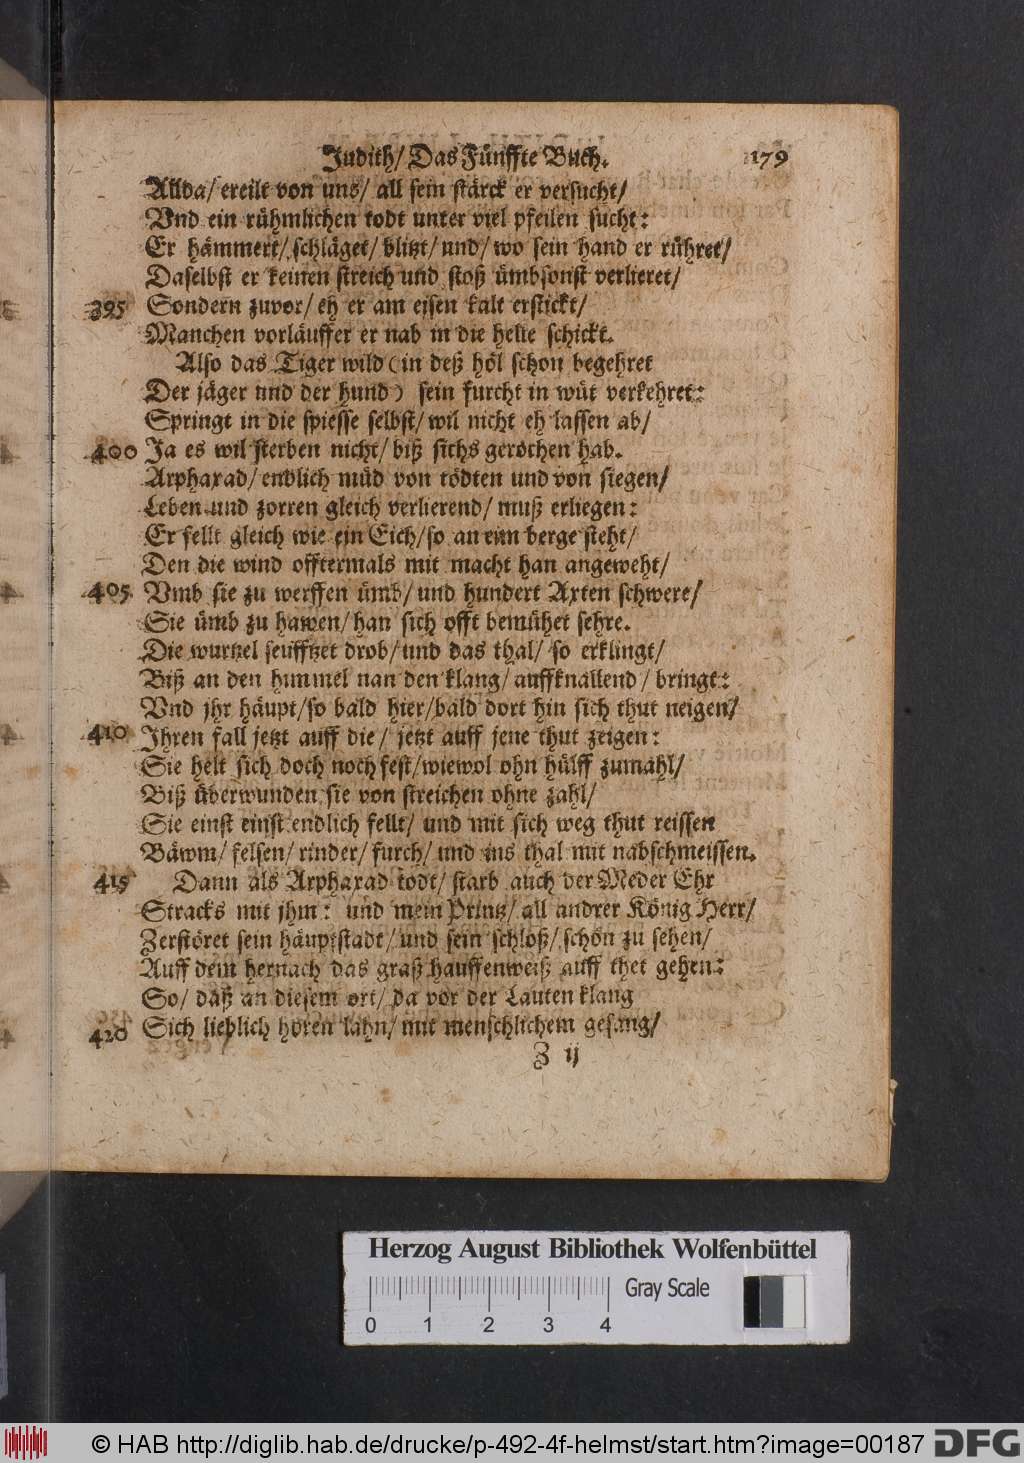 Judith/ Das Fünffte Buch. 179
Allda/ ereilt von uns/ all sein stärck er versucht/
Vnd ein rühmlichen todt unter viel pfeilen sucht:
Er hämmert/ schläget/ blitzt/ und/ wo sein hand er rühret/
Daselbst er keinen streich und stoß ümbsonst verlieret/
395 Sondern zuvor/ eh er am eisen kalt erstickt/
Manchen vorläuffer er nab in die helle schickt.
Also das Tiger wild (in deß höl schon begehret
Der jäger und der hund) sein furcht in wüt verkehret:
Springt in die spiesse selbst/ wil nicht eh lassen ab/
400 Ja es wil sterben nicht/ biß sichs gerochen hab.
Arphaxad/ endlich müd von tödten und von siegen/
Leben und zorren gleich verlierend/ muß erliegen:
Er fellt gleich wie ein Eich/ so an eim berge steht/
Den die wind offtermals mit macht han angeweht/
405 Vmb sie zu werffen ümb/ und hundert Axten schwere/
Sie ümb zu hawen/ han sich offt bemühet sehre.
Die wurtzel seufftzet drob/ und das thal/ so erklingt/
Biß an den himmel nan den klang/ auffknallend/ bringt:
Vnd jhr häupt/ so bald hier/ bald dort hin sich thut neigen/
410 Ihren fall jetzt auff die/ jetzt auff jene thut zeigen:
Sie helt sich doch noch fest/ wiewol ohn hülff zumahl/
Biß überwunden sie von streichen ohne zahl/
Sie einst einst endlich fellt/ und mit sich weg thut reissen
Bäwm/ felsen/ rinder/ furch/ und ins thal mit nabschmeissen.
415 Dann als Arphaxad todt/ starb auch der Meder Ehr
Stracks mit jhm: und mein Printz/ all andrer König Herr/
Zerstöret sein häuptstadt/ und sein schloß/ schön zu sehen/
Auff dem hernach das graß hauffenweiß auff thet gehen:
So/ daß an diesem ort/ da vor der Lauten klang
420 Sich lieblich hören lahn/ mit menschlichem gesang/
Z ij
Herzog August Bibliothek Wolfenbüttel
Gray Scale
0 1 2 3 4
© HAB http://diglib.hab.de/drucke/p-492-4f-helmst/start.htm?image=00187 DFG